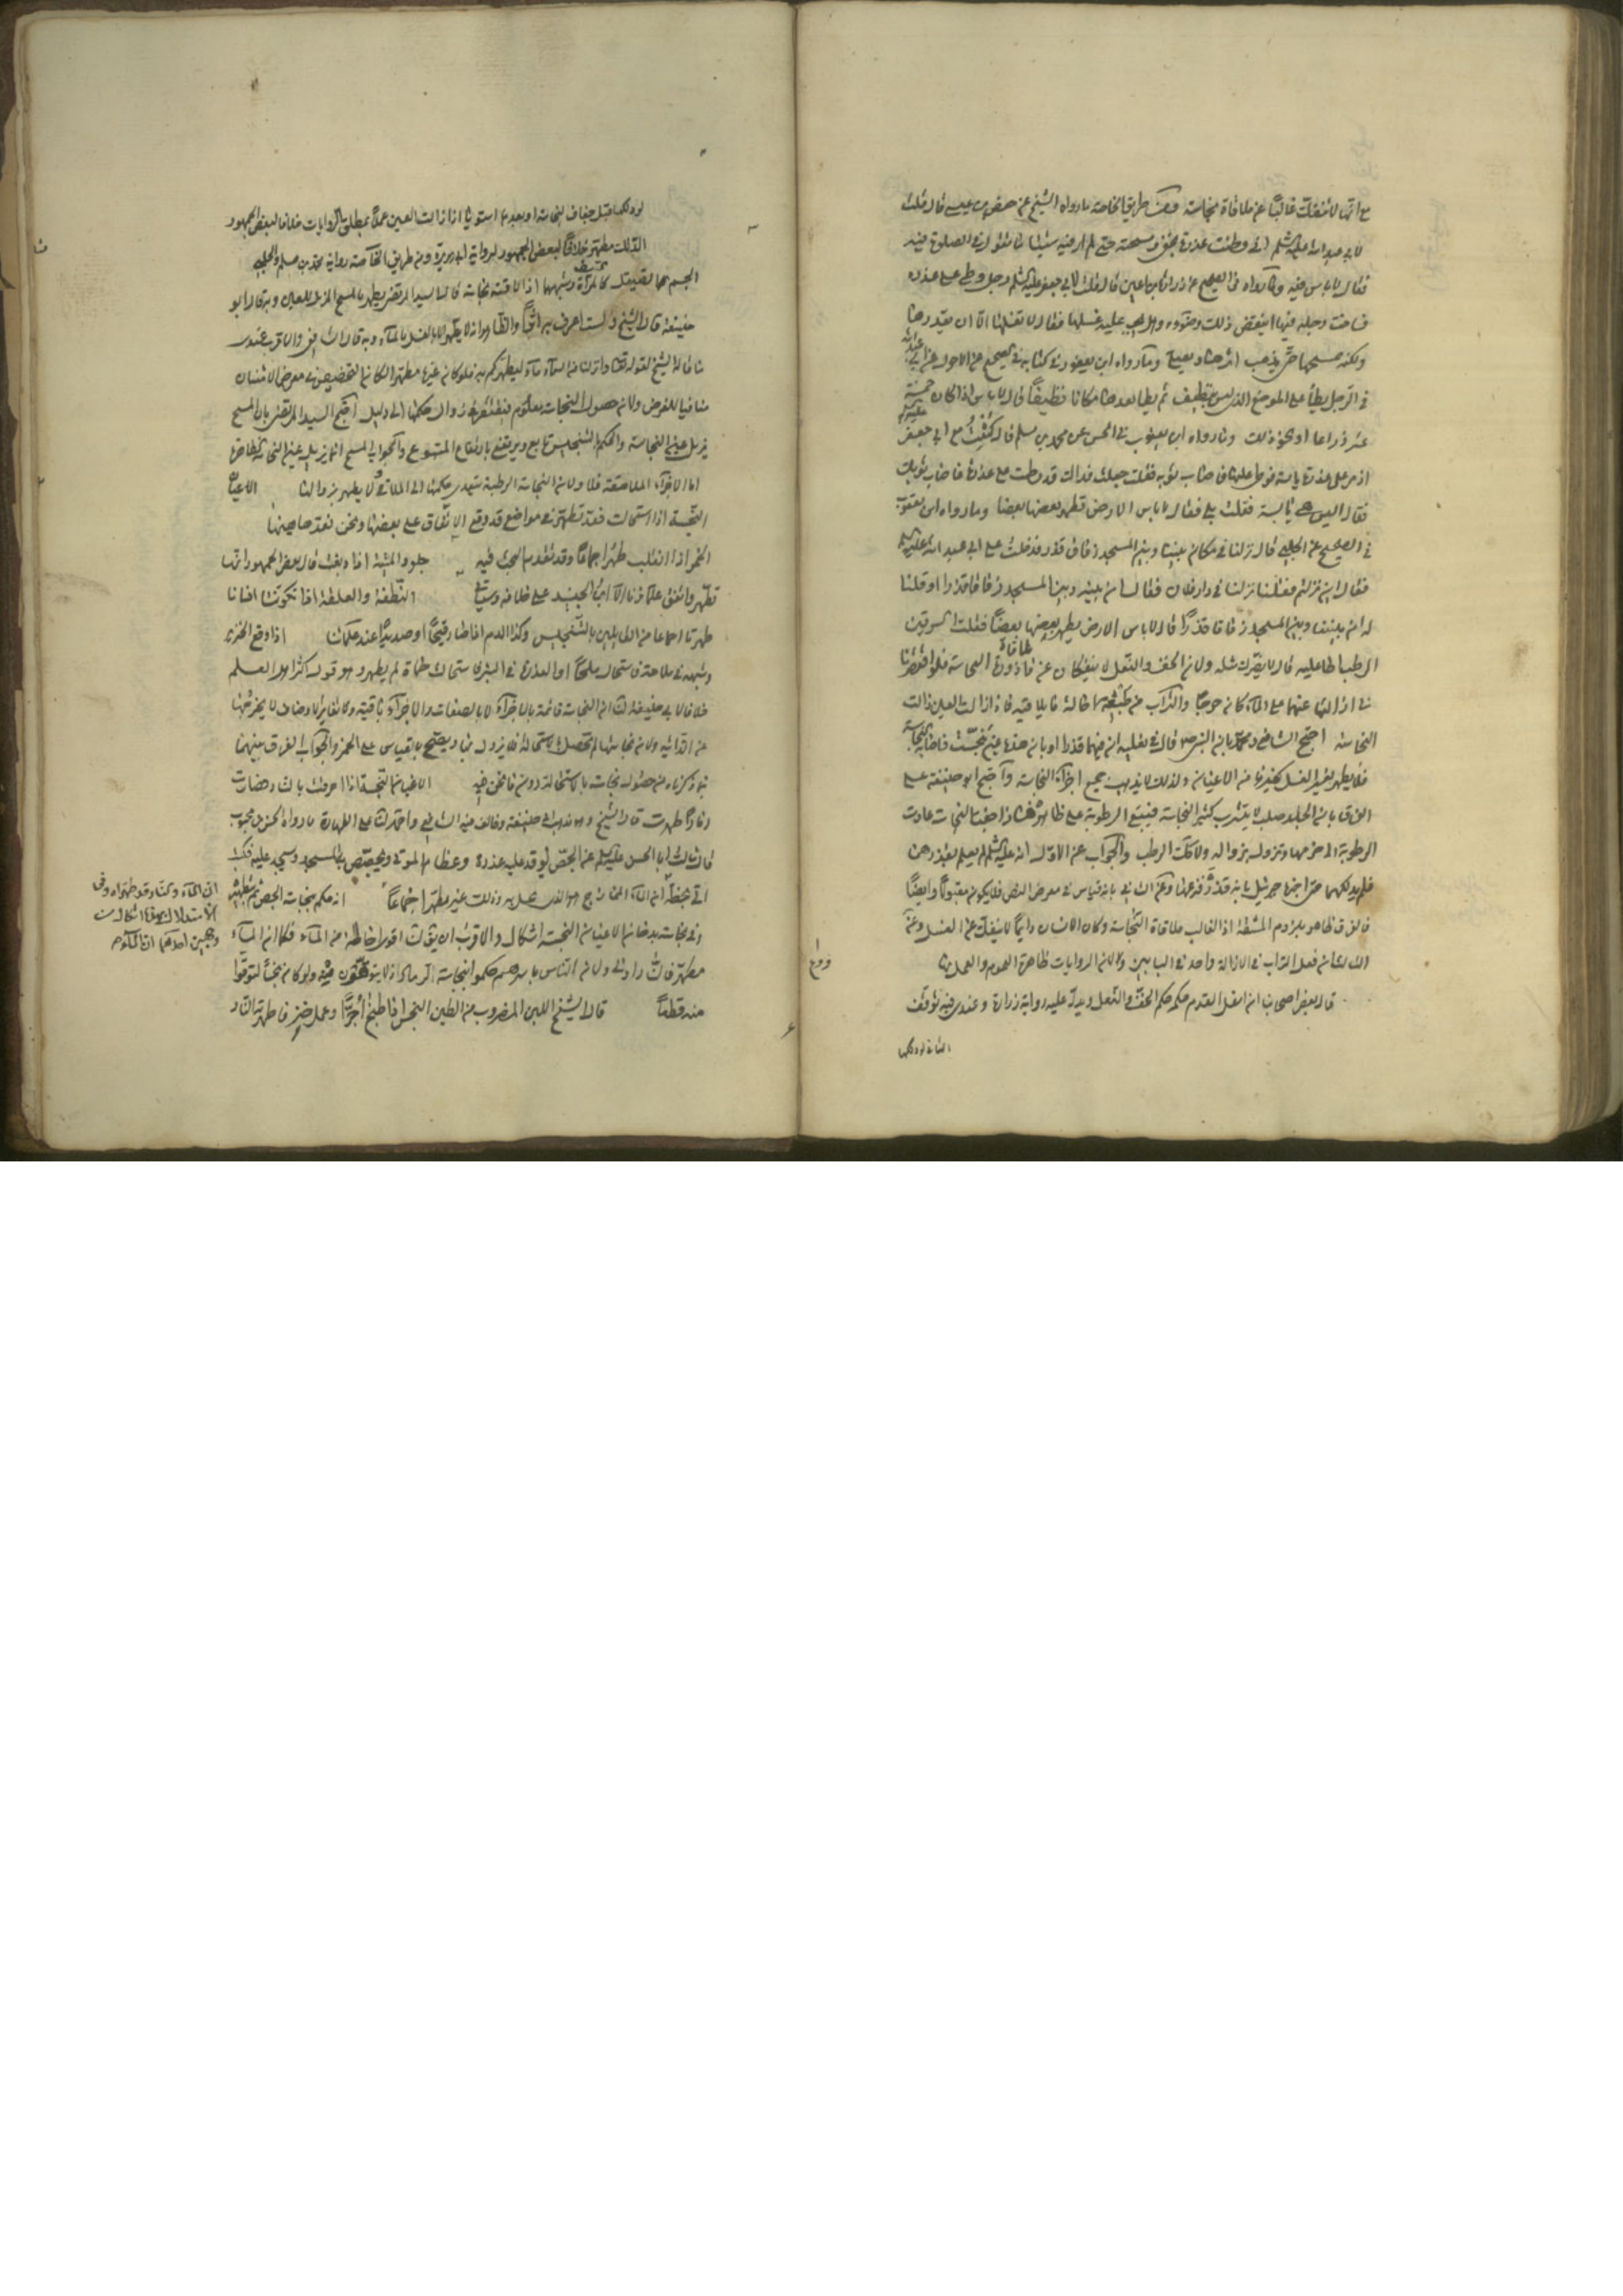 مع انها لا تنفك غالبا عن ملاقاة نجاسة ومن طريق الخاصة ما رواه الشيخ عن حفص بن عيسى قال قلت
لابي عبد الله عليه السلم اني وطئت عذرة بخفي ومسحته حتى لم ار فيه شيئا ما تقول في الصلوة فيه
فقال لا باس فيه وما رواه في الصحيح عن زرارة بن اعين قال قلت لابي جعفر عليه السلم رجل وطى على عذرة
فساخت رجله فيها اينقض ذلك وضوءه وهل يجب عليه غسلها فقال لا تغسلها الا ان يقذرها
ولكنه يمسحها حتى يذهب اثرها ويصلي وما رواه ابن يعقوب في كتابه في الصحيح عن الاحول عن ابي عبد الله
في الرجل يطأ على الموضع الذي ليس بنظيف ثم يطأ بعده مكانا نظيفا قال لا باس اذا كان خمسة
عشر ذراعا او نحو ذلك وما رواه ابن يعقوب في الحسن عن محمد بن مسلم قال كنت مع ابي جعفر عليه السلم
اذ مر على عذرة يابسة فوطى عليها فاصاب ثوبه فقلت جعلت فداك قد وطئت على عذرة فاصاب ثوبك
فقال اليس هي يابسة فقلت بلى فقال لا باس الارض تطهر بعضها بعضا وما رواه ابن يعقوب
في الصحيح عن الحلبي قال نزلنا في مكان بيننا وبين المسجد زقاق قذر فدخلت على ابي عبد الله عليه السلم
فقال اين نزلتم فقلنا نزلنا في دار فلان فقال ان بينه وبين المسجد زقاقا قذرا او قلنا
له ان بيننا وبين المسجد زقاقا قذرا قال لا باس الارض يطهر بعضها بعضا قلت السرقين
الرطب اطا عليه قال لا يضرك مثله ولان الخف والنعل لا ينفكان عن ملاقاة النجاسة فلو اقتصرنا
في ازالتها عنهما على الماء كان حرجا والتراب من طبيعته احالة ما يلاقيه فاذا زالت العين زالت
النجاسة احتج الشافعي ومحمد بان النبي ص قال في نعليه ان فيهما قذرا او بان هذه عين نجست فاصابه النجاسة
فلا يطهر بغير الغسل كغيرها من الاعيان ولذلك لا يذهب جميع اجزاء النجاسة واحتج ابو حنيفة على
الفرق بان الجلد صلب لا يتشرب كثير النجاسة فيبقى الرطوبة على ظاهره فاذا جفت النجاسة عادت
الرطوبة الى جرمها وتزول بزواله ولا كذلك الرطب والجواب عن الاول انه عليه السلم لم يعلم بقذرهن
فلم يدلكهما حتى اخبره جبرئيل بانه قذر فنزعهما وعن الثاني بانه قياس في معرض النص فلا يكون مقبولا وايضا
فالفرق ظاهر بلزوم المشقة اذ الغالب ملاقاة النجاسة وكان الانسان دايما لا ينفك عن الغسل وعن
الثالث ان فعل التراب في الازالة واحد في البابين ولان الروايات ظاهرة العموم والعمل بها
فروع
قال بعض اصحابنا ان اسفل القدم حكمه حكم الخف والنعل ويدل عليه رواية زرارة وعندي فيه توقف
الثاني لو دلكها
لو دلكها قبل جفاف النجاسة او بعدها استويا اذا زالت العين عملا بمطلق الروايات خلافا لبعض الجمهور
الثالث مطهر خلافا لبعض الجمهور لرواية ابي هريرة ومن طريق الخاصة رواية محمد بن مسلم والحلبي
الجسم الصقيل كالمرآة وشبهها اذا لاقته نجاسة قال السيد المرتضى يطهر بالمسح المزيل للعين وبه قال ابو
حنيفة قال الشيخ ولست اعرف به اثرا والظاهر انه لا يطهر الا بالغسل بالماء وبه قال الشافعي والاقرب عندي
ما قاله الشيخ لقوله تعالى وانزلنا من السماء ماء ليطهركم به فلو كان غيره مطهرا لكان التخصيص في معرض الامتنان
منافيا للغرض ولان حصول النجاسة معلوم فيفتقر في زوال حكمها الى دليل احتج السيد المرتضى بان المسح
يزيل عين النجاسة والحكم بالتنجيس تابع ويرتفع بارتفاع المتبوع والجواب المسح انما يزيل عين النجاسة الظاهرة
اما الاجزاء الملاصقة فلا ولان النجاسة الرطبة يتعدى حكمها الى الملاقي فلا يطهر بزوالها الاعيان
النجسة اذا استحالت فقد تطهر في مواضع قد وقع الاتفاق على بعضها ونحن نعدها هيهنا
الخمر اذا انقلب طهر اجماعا وقد تقدم البحث فيه جلود الميتة اذا دبغت قال بعض الجمهور انها
تطهر واتفق علماؤنا الا ابن الجنيد على خلافه وسيأتي النطفة والعلقة اذا تكونتا انسانا
طهرتا اجماعا من القايلين بالتنجيس وكذا الدم اذا صار قيحا او صديدا عند علمائنا اذا وقع الخنزير
وشبهه في ملاحة فاستحال ملحا او العذرة في البئر فاستحالت حماة لم يطهر وهو قول اكثر اهل العلم
خلافا لابي حنيفة لنا ان النجاسة قائمة بالاجزاء لا بالصفات والاجزاء باقية وتغاير الاوصاف لا يخرجها
عن الذاتية ولان نجاستها لم تحصل بالاستحالة فلا يزول بها ويصح بالقياس على الخمر والجواب الفرق بينهما
بما ذكرناه من حصول نجاسته بالاستحالة دون ما نحن فيه الاعيان النجسة اذا احرقت بالنار فصارت
رمادا طهرت قال الشيخ وهو مذهب ابي حنيفة وخالف فيه الشافعي واحمد لنا على الطهارة ما رواه الحسن بن محبوب
قال سالت ابا الحسن عليه السلم عن الجص يوقد عليه عذرة وعظام الموتى ويجصص به المسجد ويسجد عليه فكتب
الي بخطه ان الماء والنار قد طهراه وفي الاستدلال بهذا اشكال من وجهين احدهما ان الماء
الممازج هو الذي يحل به وذلك غير مطهر اجماعا انه حكم بنجاسة الجص ثم بتطهيره
وفي نجاسته بدخان الاعيان النجسة اشكال والاقرب ان يقال
مطهرة فالنار اولى ولان الناس باسرهم لم يحكموا بنجاسة الرماد اذ لا يتوقون منه ولو كان نجسا لتوقوا
منه قطعا قال الشيخ اللبن المضروب من الطين النجس اذا طبخ آجرا وعمل خزفا طهرته النار